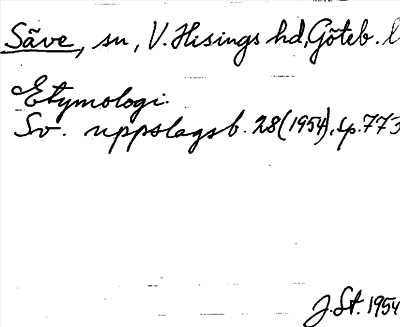 Säve, sn, V. Hisings hd, Göteb. l
Etymologi.
Sv. uppslagsb. 28 (1954), sp. 773
J. St. 1954